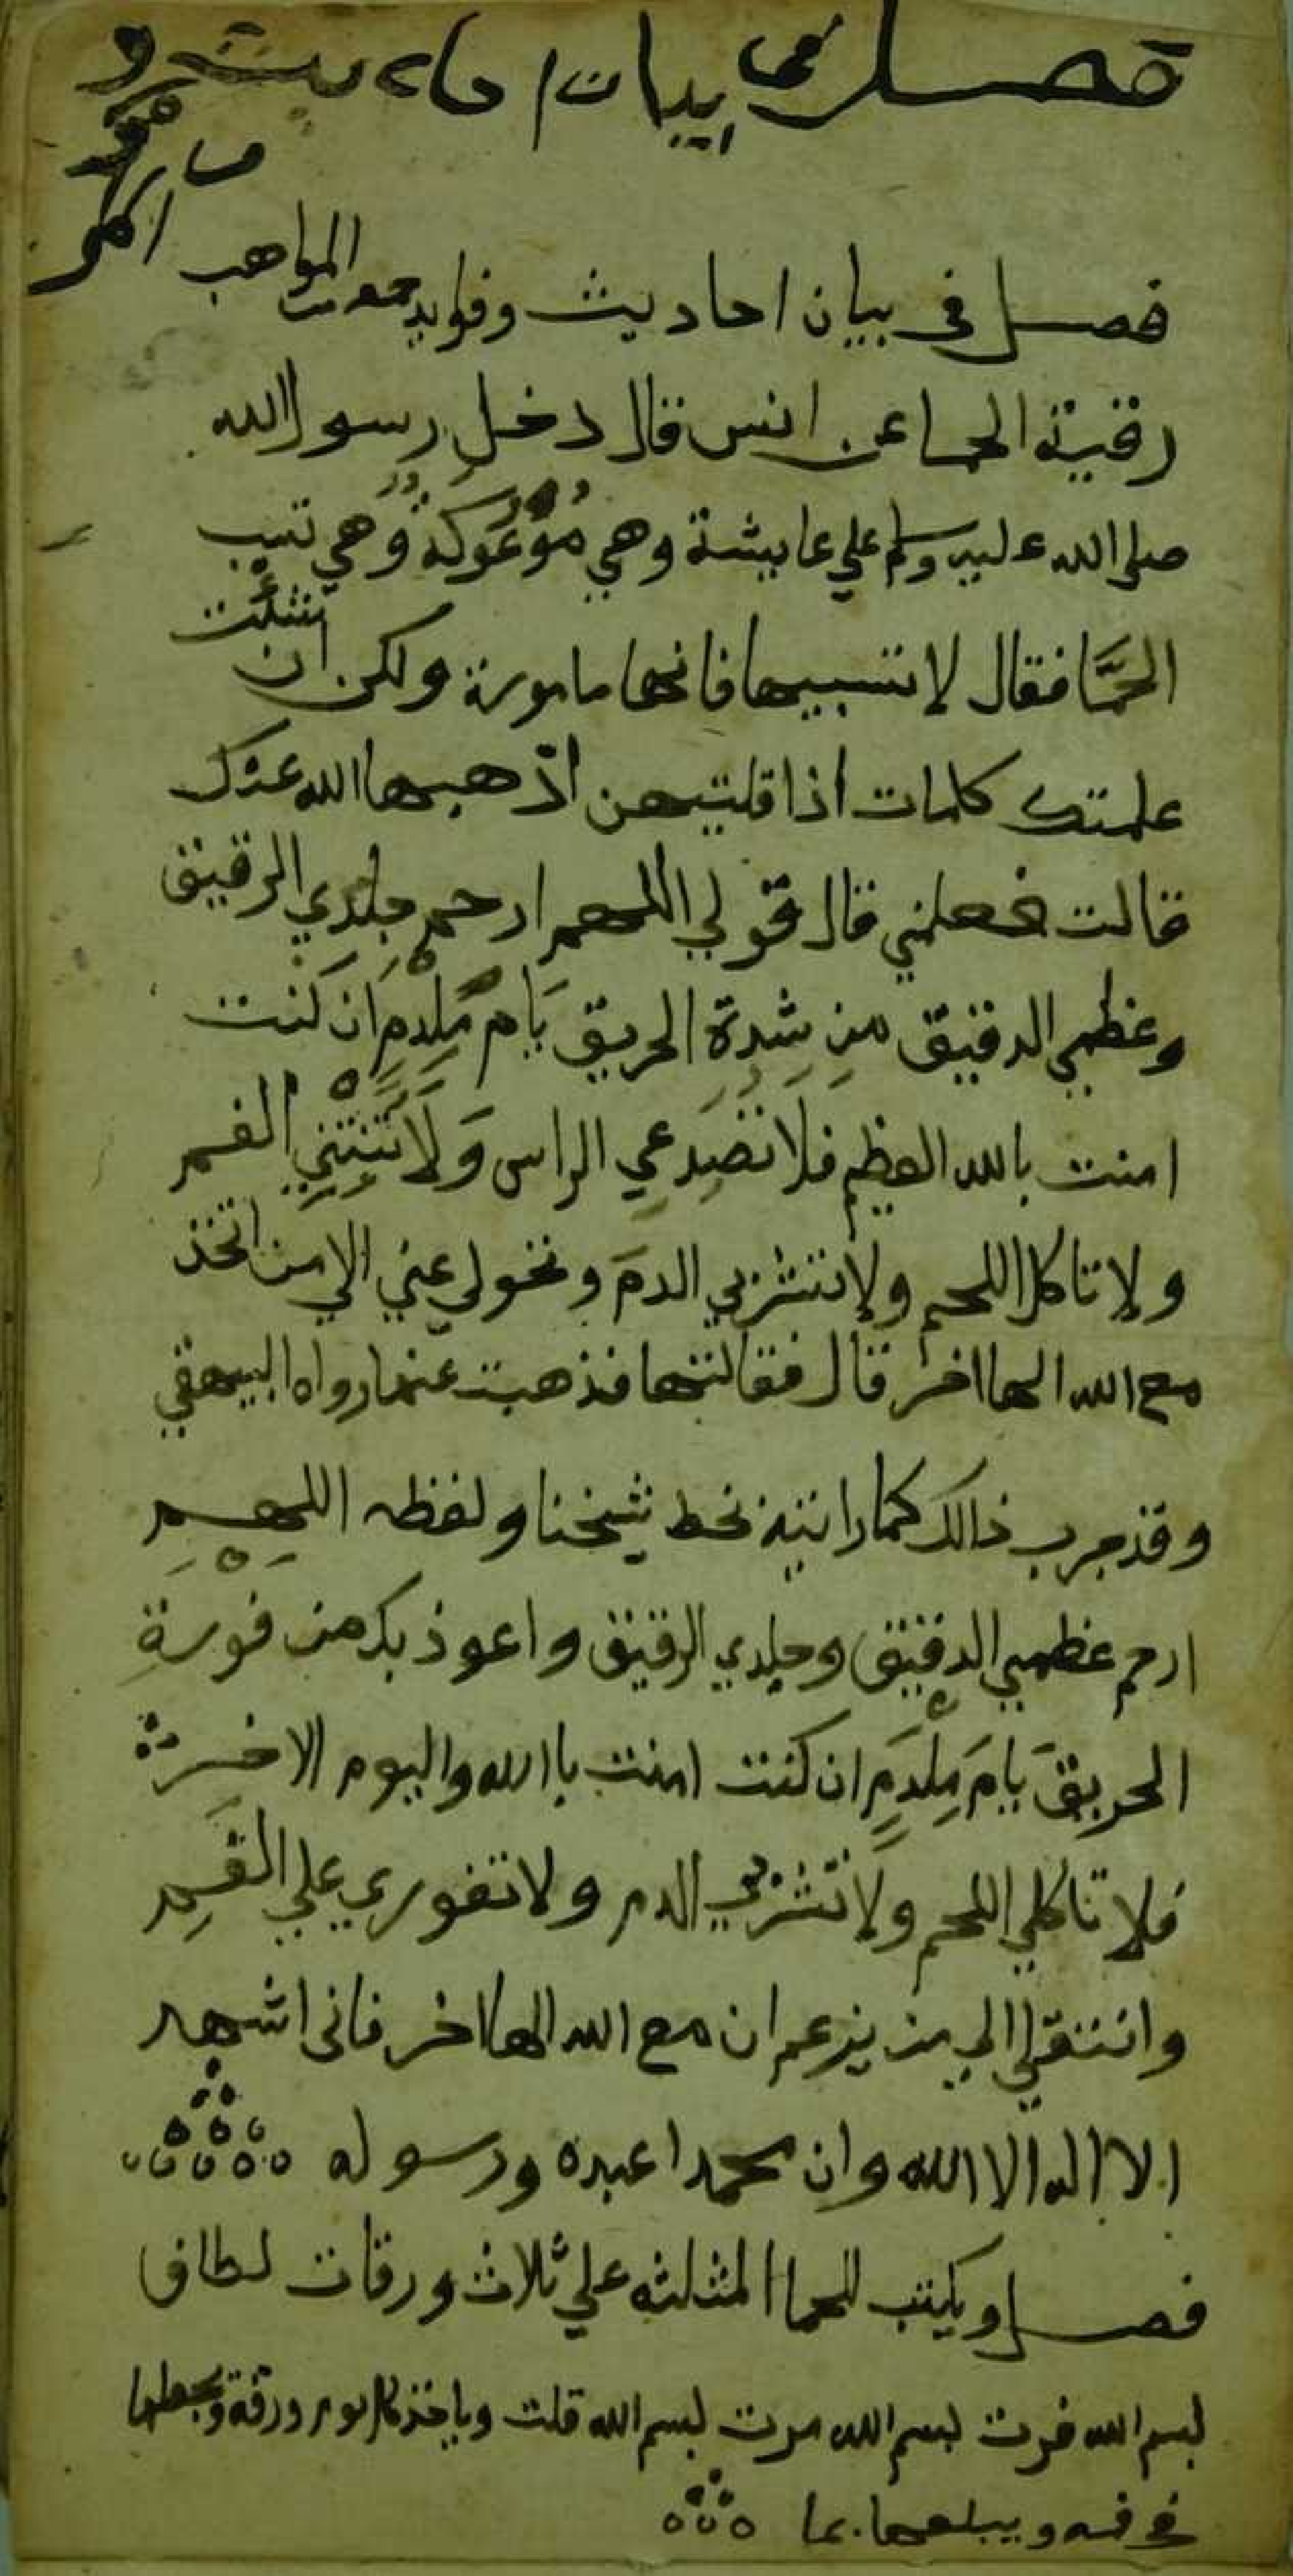 فصل في بيان احاديث و
فصل في بيان احاديث وفوايد جمعت المواهب
رقية الحما عن انس قال دخل رسول الله
صلى الله عليه وسلم علي عايشة وهي موعوكة وهي تسب
الحما فقال لا تسبيها فانها مامورة ولكن ان شئت
علمتك كلمات اذا قلتيهن اذهبها الله عنك
قالت فعلمني قال قولي اللهم ارحم جلدي الرقيق
وعظمي الدقيق من شدة الحريق يا ام ملدم ان كنت
امنت بالله العظيم فلا تصدعي الراس ولا تنتني الفم
ولا تاكل اللحم ولا تشربي الدم وتحولي عني الي من اتخذ
مع الله الها اخر قال فقالتها فذهبت عنها رواه البيهقي
وقد جرب ذالك كما رايته بخط شيخنا ولفظه اللهم
ارحم عظمي الدقيق وجلدي الرقيق واعوذ بك من فورة
الحريق يا ام ملدم ان كنت امنت باالله واليوم الاخر
فلا تاكلي اللحم ولا تشربي الدم ولا تفوري علي الفم
وانتقلي الي من يزعم ان مع الله الها اخر فاني اشهد
الا اله الا الله وان محمدا عبده ورسوله
فصل ويكتب للحما المثلثه علي ثلاث ورقات لطاف
بسم الله فرت بسم الله مرت بسم الله قلت وياخذ كل يوم ورقة ويجعلها
في فمه ويبلعها بما